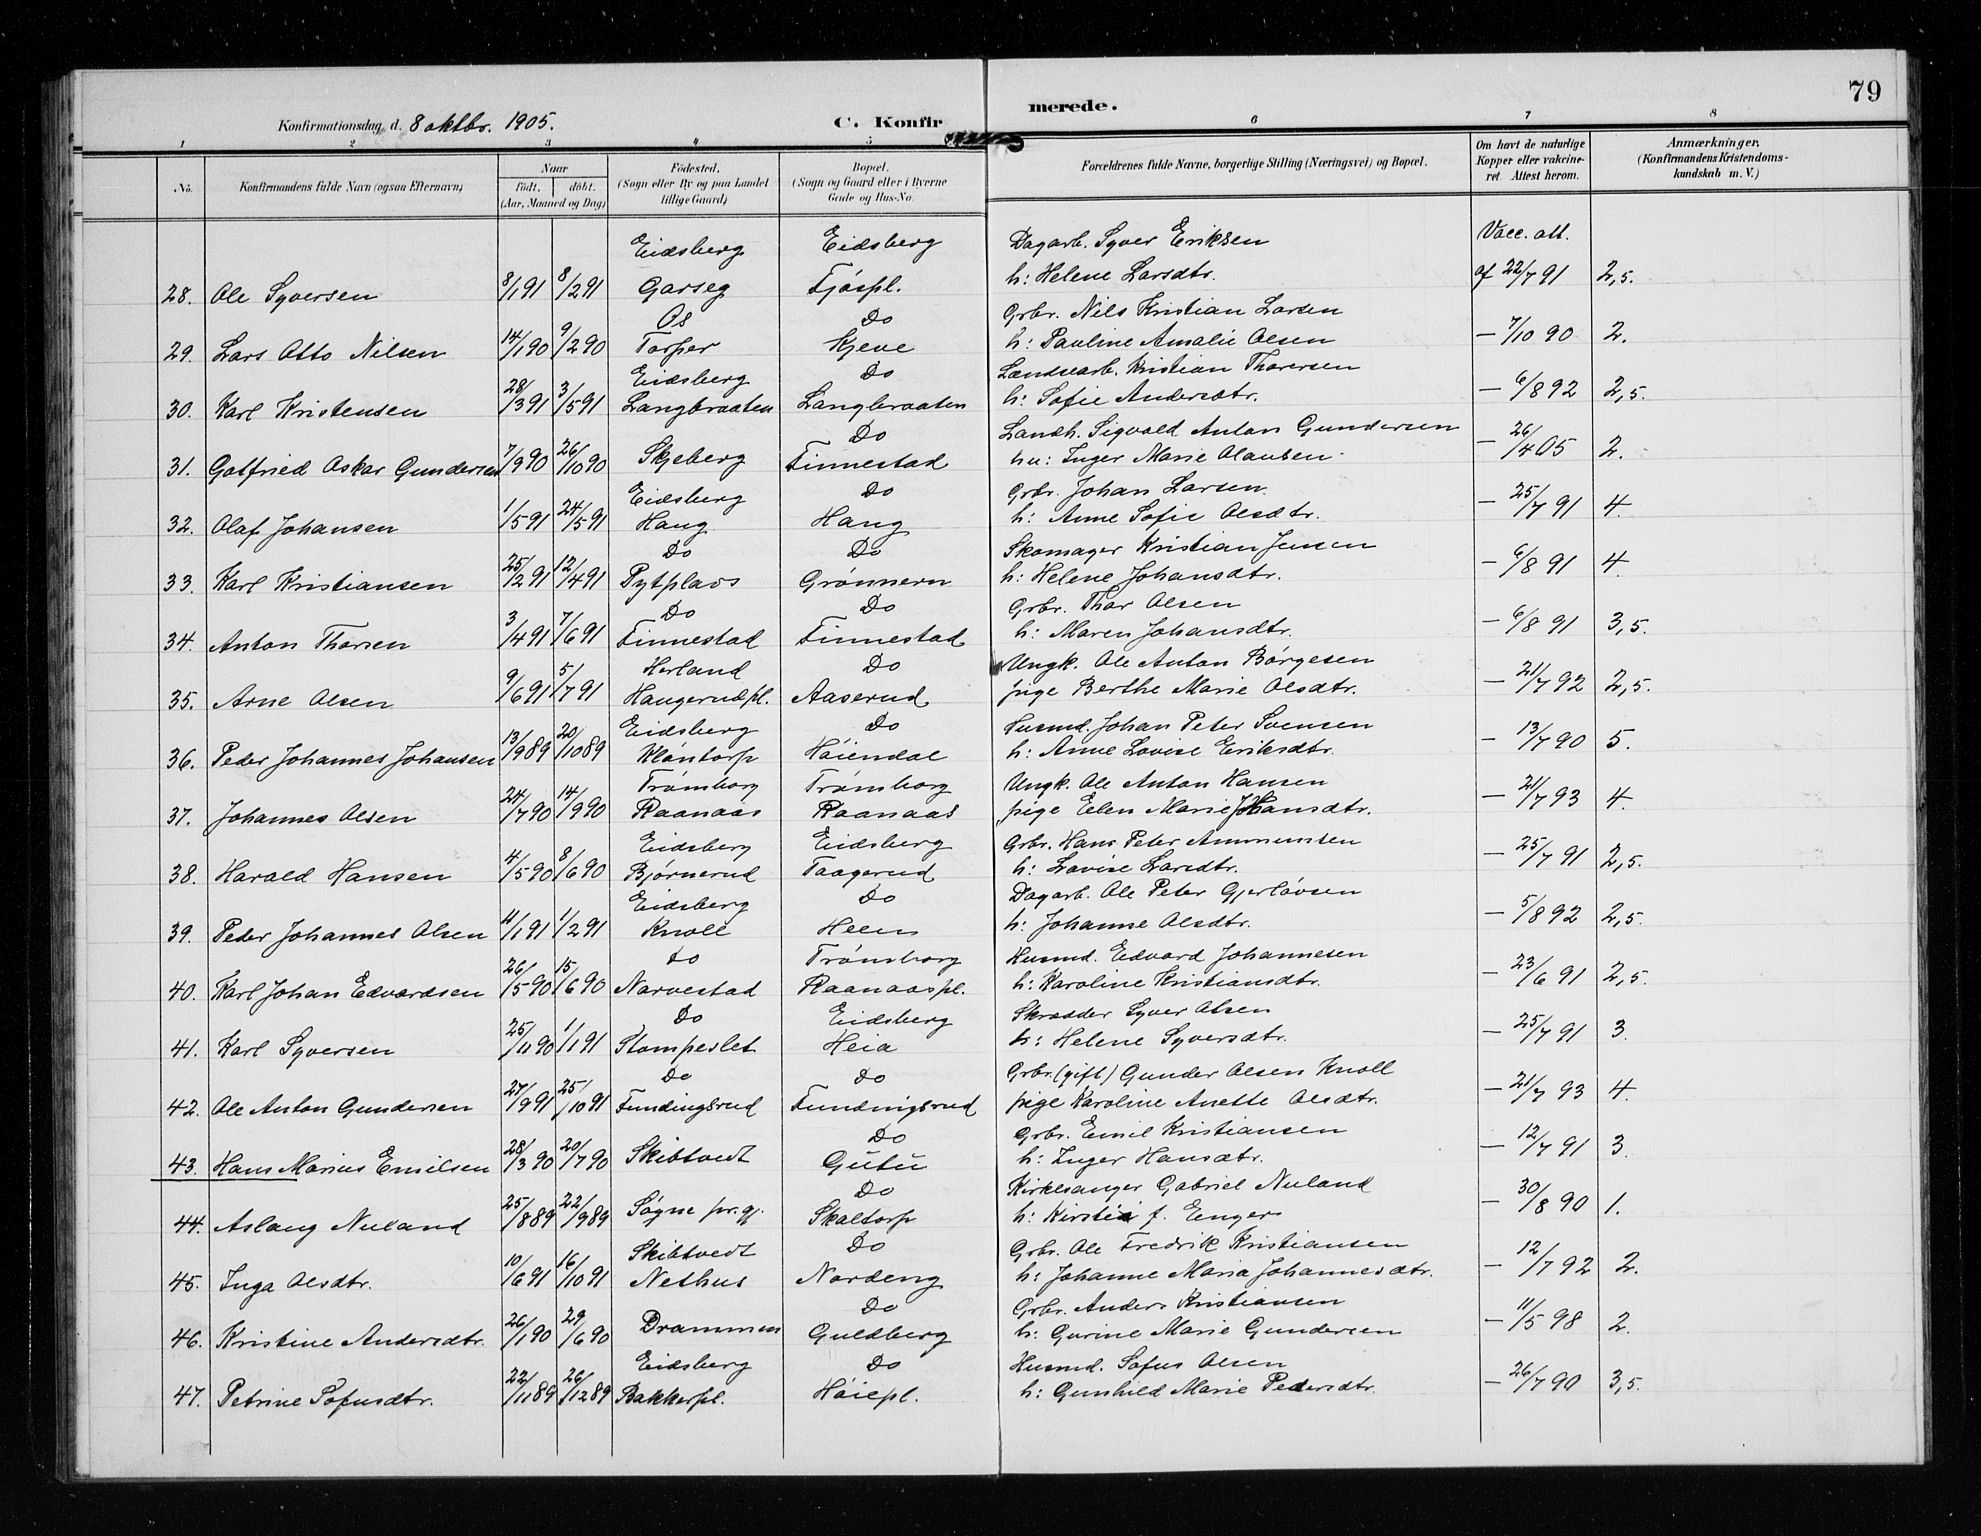 79
Konfirmationsdag d. 8 oktbr. 1905.
C. Konfir
merede.
1 2 3 4 5 6 7 8
No.
Konfirmandens fulde Navn (ogsaa Efternavn)
Naar
født. døbt.
(Aar, Maaned og Dag)
Fødested.
(Sogn eller By og paa Landet
tillige Gaard)
Bopæl.
(Sogn og Gaard eller i Byerne
Gade og Hus-No.
Forældrenes fulde Navne, borgerlige Stilling (Næringsvei) og Bopæl.
Om havt de naturlige
Kopper eller vakcine-
ret. Attest herom.
Anmærkninger,
(Konfirmandens Kristendoms-
kundskab m. V.)
Eidsberg Eidsberg Dagarb. Syver Eriksen Vacc. att.
28. Ole Syversen 8/1 91 8/2 91 Garseg Fjøspl. h: Helene Larsdtr. af 22/7 91 2,5.
Os Do Grbr. Nils Kristian Larsen
29. Lars Otto Nilsen 14/1 90 9/2 90 Torper Kjeve h: Pauline Amalie Olsen — 7/10 90 2.
Eidsberg Do Lændsearb. Kristian Thoresen
30. Karl Kristensen 28/3 91 3/5 91 Langbraaten Langbraaten h: Sofie Andersdtr. — 6/8 92 2,5.
Do Landh. Sigvald Anton Gundersen
31. Gotfried Oskar Gundersen 7/9 90 26/10 90 Skjeberg Finnestad hu: Inger Marie Olausen — 26/4 05 2.
Eidsberg Do Grbr. Johan Larsen
32. Olaf Johansen 1/5 91 24/5 91 Haug Haug h: Anne Sofie Olsdtr. — 25/7 91 4.
Do Do Skomager Kristian Jensen
33. Karl Kristiansen 25/2 91 12/4 91 Pytplads Grønnern h: Helene Johansdtr. — 6/8 91 4.
Do Do Grbr. Thor Olsen
34. Anton Thorsen 3/4 91 7/6 91 Finnestad Finnestad h: Maren Johansdtr. — 6/8 91 3,5.
Herland Do Ungk. Ole Anton Børgesen
35. Arne Olsen 9/6 91 5/7 91 Haugerudpl. Aaserud pige Berthe Marie Olsdtr. — 21/7 92 2,5.
Eidsberg Do Husmd. Johan Peter Svensen
36. Peder Johannes Johansen 13/9 89 20/10 89 Kløntorp Høiendal h: Anne Lovise Eriksdtr. — 13/7 90 5.
Trømborg Trømborg Ungk. Ole Anton Hansen
37. Johannes Olsen 24/7 90 14/9 90 Raanaas Raanaas pige Elen Marie Johansdtr. — 21/7 93 4.
Eidsberg Eidsberg Grbr. Hans Peter Ammunsten
38. Harald Hansen 4/5 90 8/6 90 Bjørnerud Taagerud h: Lovise Larsdtr. — 25/7 91 2,5.
Eidsberg Do Dagarb. Ole Peter Gjerløvsen
39. Peder Johannes Olsen 4/1 91 1/2 91 Knoll Heen h: Johanne Olsdtr. — 5/8 92 2,5.
do Trømborg Husmd. Edvard Johannesen
40. Karl Johan Edvardsen 26/5 90 15/6 90 Narvestad Raanaaspl. h: Karoline Kristiansdtr. — 23/6 91 2,5.
Do Eidsberg Skrædder Syver Olsen
41. Karl Syversen 25/11 90 1/1 91 Stompeslet Heia h: Helene Syversdtr. — 25/7 91 3.
Do do Grbr. (gift) Gunder Olsen Knoll
42. Ole Anton Gundersen 27/9 91 25/10 91 Fundingsrud Fundingsrud pige Karoline Anette Olsdtr. — 21/7 93 4.
Do Grbr. Emil Kristiansen
43. Hans Marius Emilsen 28/3 90 20/7 90 Skibtvedt Gutu h: Inger Hansdtr. — 12/7 91 3.
Do Kirkesanger Gabriel Nuland
44. Aslaug Nuland 25/8 89 22/9 89 Søgne pr.gj. Skaltorp h: Kirstia f. Enger — 30/8 90 1.
Skibtvedt Do Grbr. Ole Fredrik Kristiansen
45. Inga Olsdtr. 10/6 91 16/10 91 Nethus Nordeng h: Johanne Maria Johannesdtr. — 12/7 92 2.
Do Grbr. Anders Kristiansen
46. Kristine Andersdtr. 26/1 90 29/6 90 Drammen Guldberg h: Gurine Marie Gundersen — 11/5 98 2.
Eidsberg Do Husmd. Sofus Olsen
47. Petrine Sofusdtr. 22/11 89 26/12 89 Bakkerpl. Høiepl. h: Gunhild Marie Pedersdtr. — 26/7 90 3,5.